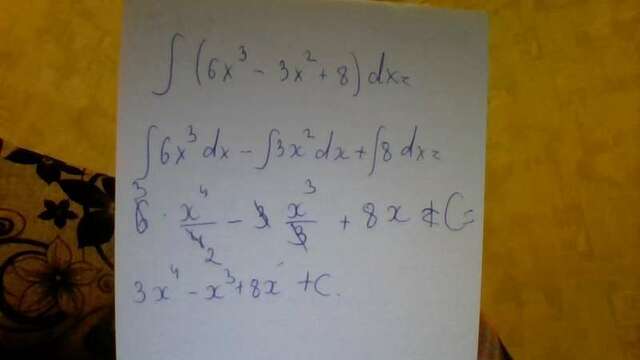 ∫(6x³ - 3x² + 8)dx =
∫6x³dx - ∫3x²dx + ∫8dx =
6 · x⁴/4 - 3 x³/3 + 8x + C =
3x⁴ - x³ + 8x + C.